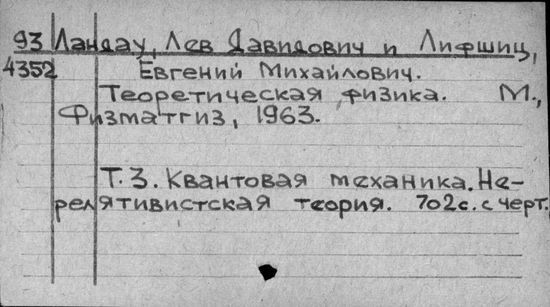 93 Ландау, Лев Давидович и Лифшиц,
4352 Евгений Михайлович.
Теоретическая физика. М.,
Физматгиз, 1963.
Т. 3. Квантовая механика. Не-
релятивистская теория. 702с. с черт.